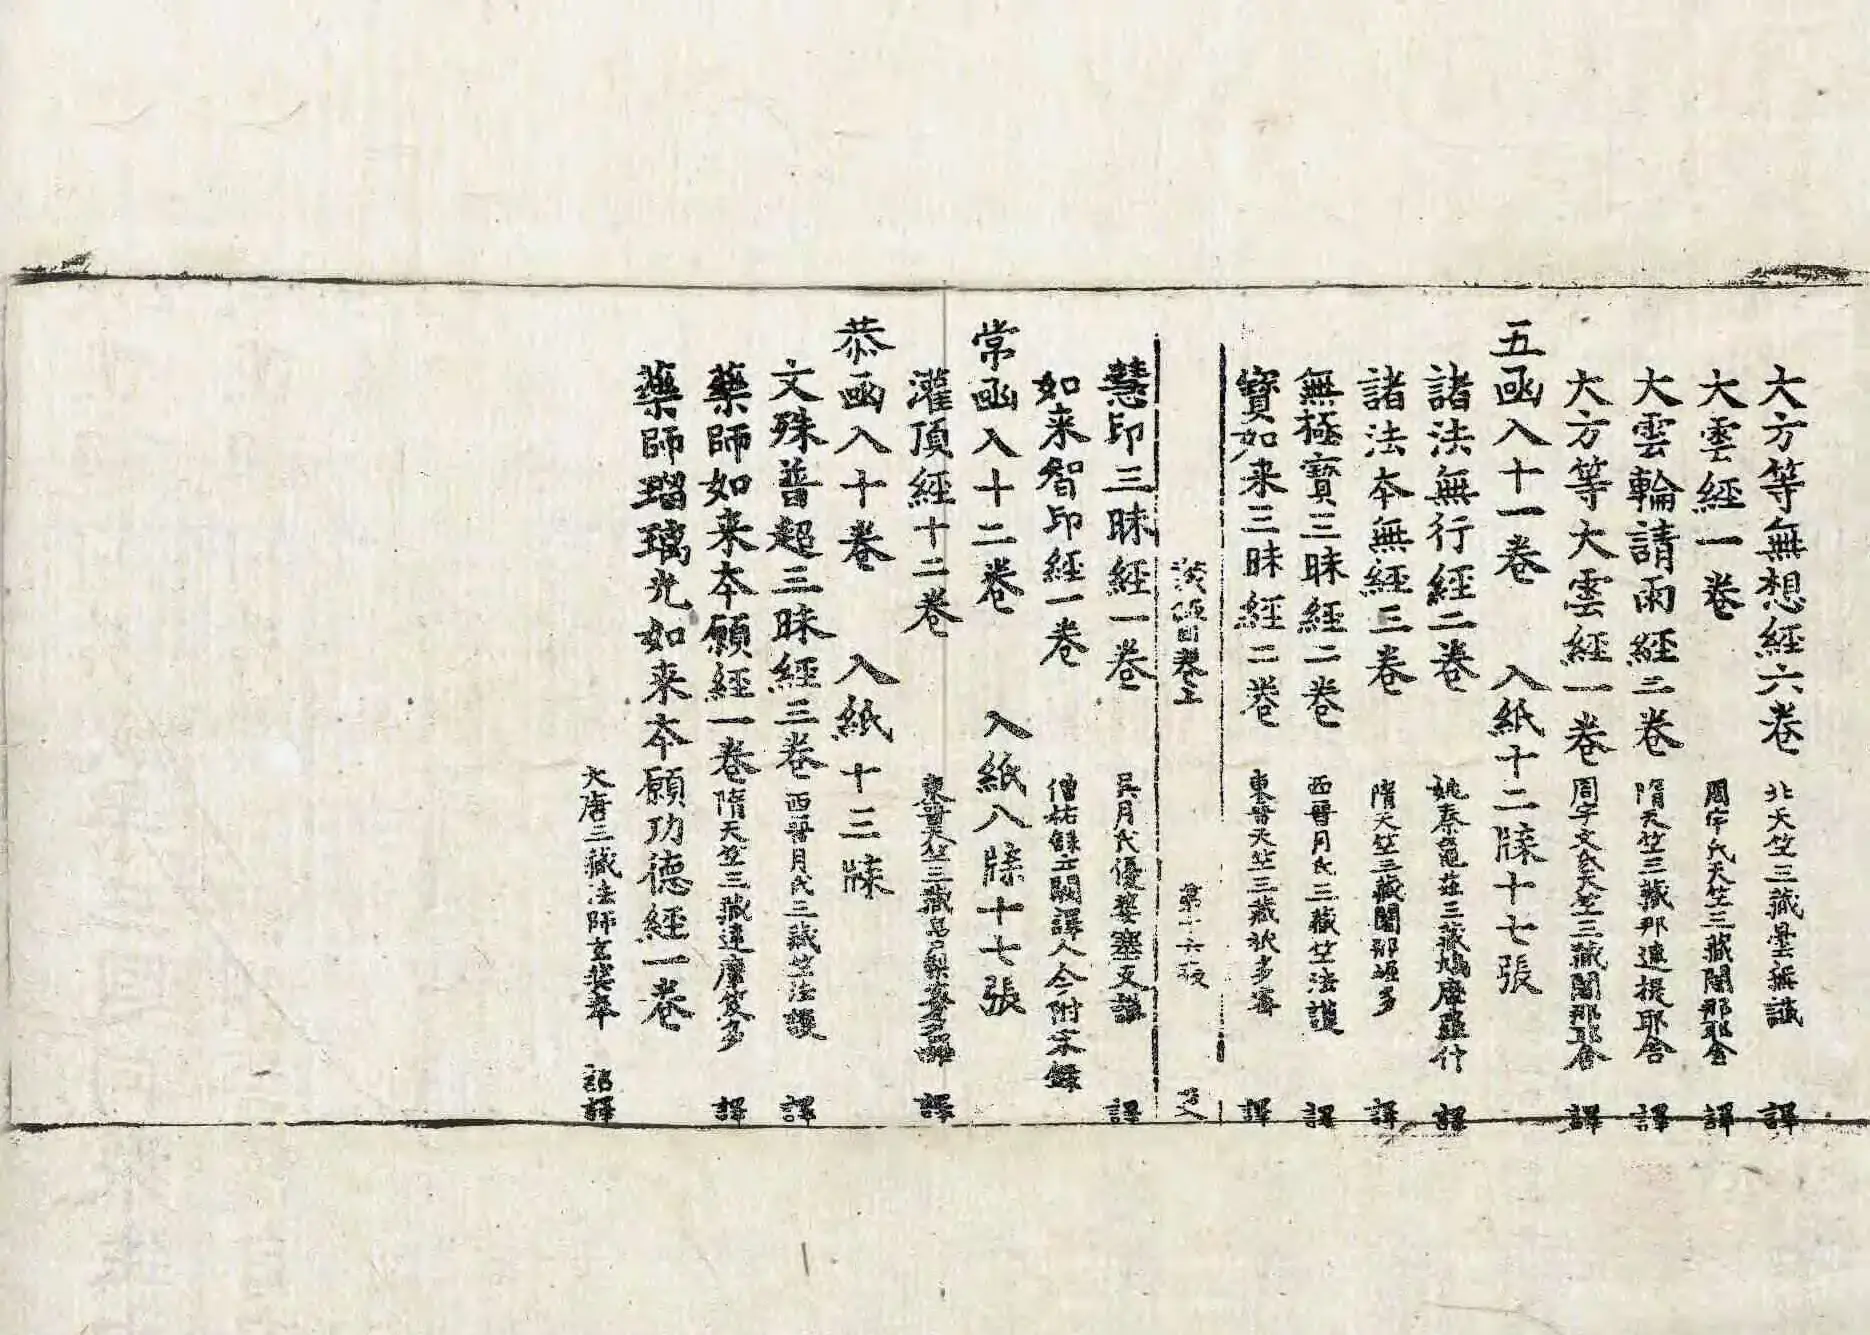 大方等無想經六卷 北天竺三藏曇無讖 譯
大雲經一卷 周宇氏天竺三藏闍那耶舍 譯
大雲輪請雨經二卷 隋天竺三藏那連提耶舍 譯
大方等大雲經一卷 周宇文氏天竺三藏闍那耶舍 譯
五函入十一卷 入紙十二牒十七張
諸法無行經二卷 姚秦龜茲三藏鳩摩羅什 譯
諸法本無經三卷 隋天竺三藏闍那崛多 譯
無極寶三昧經二卷 西晉月氏三藏竺法護 譯
寶如来三昧經二卷 東晉天竺三藏祇多蜜 譯
目卷上 第十六張
慧印三昧經一卷 吳月氏優婆塞支謙 譯
如来智印經一卷 僧祐錄云闕譯人今附宋錄
常函入十二卷 入紙八牒十七張
灌頂經十二卷 東晉天竺三藏帛尸梨蜜多羅 譯
恭函入十卷 入紙十三牒
文殊普超三昧經三卷 西晉月氏三藏竺法護 譯
藥師如来本願經一卷 隋天竺三藏達摩笈多 譯
藥師瑠璃光如来本願功德經一卷
大唐三藏法師玄奘奉 詔譯